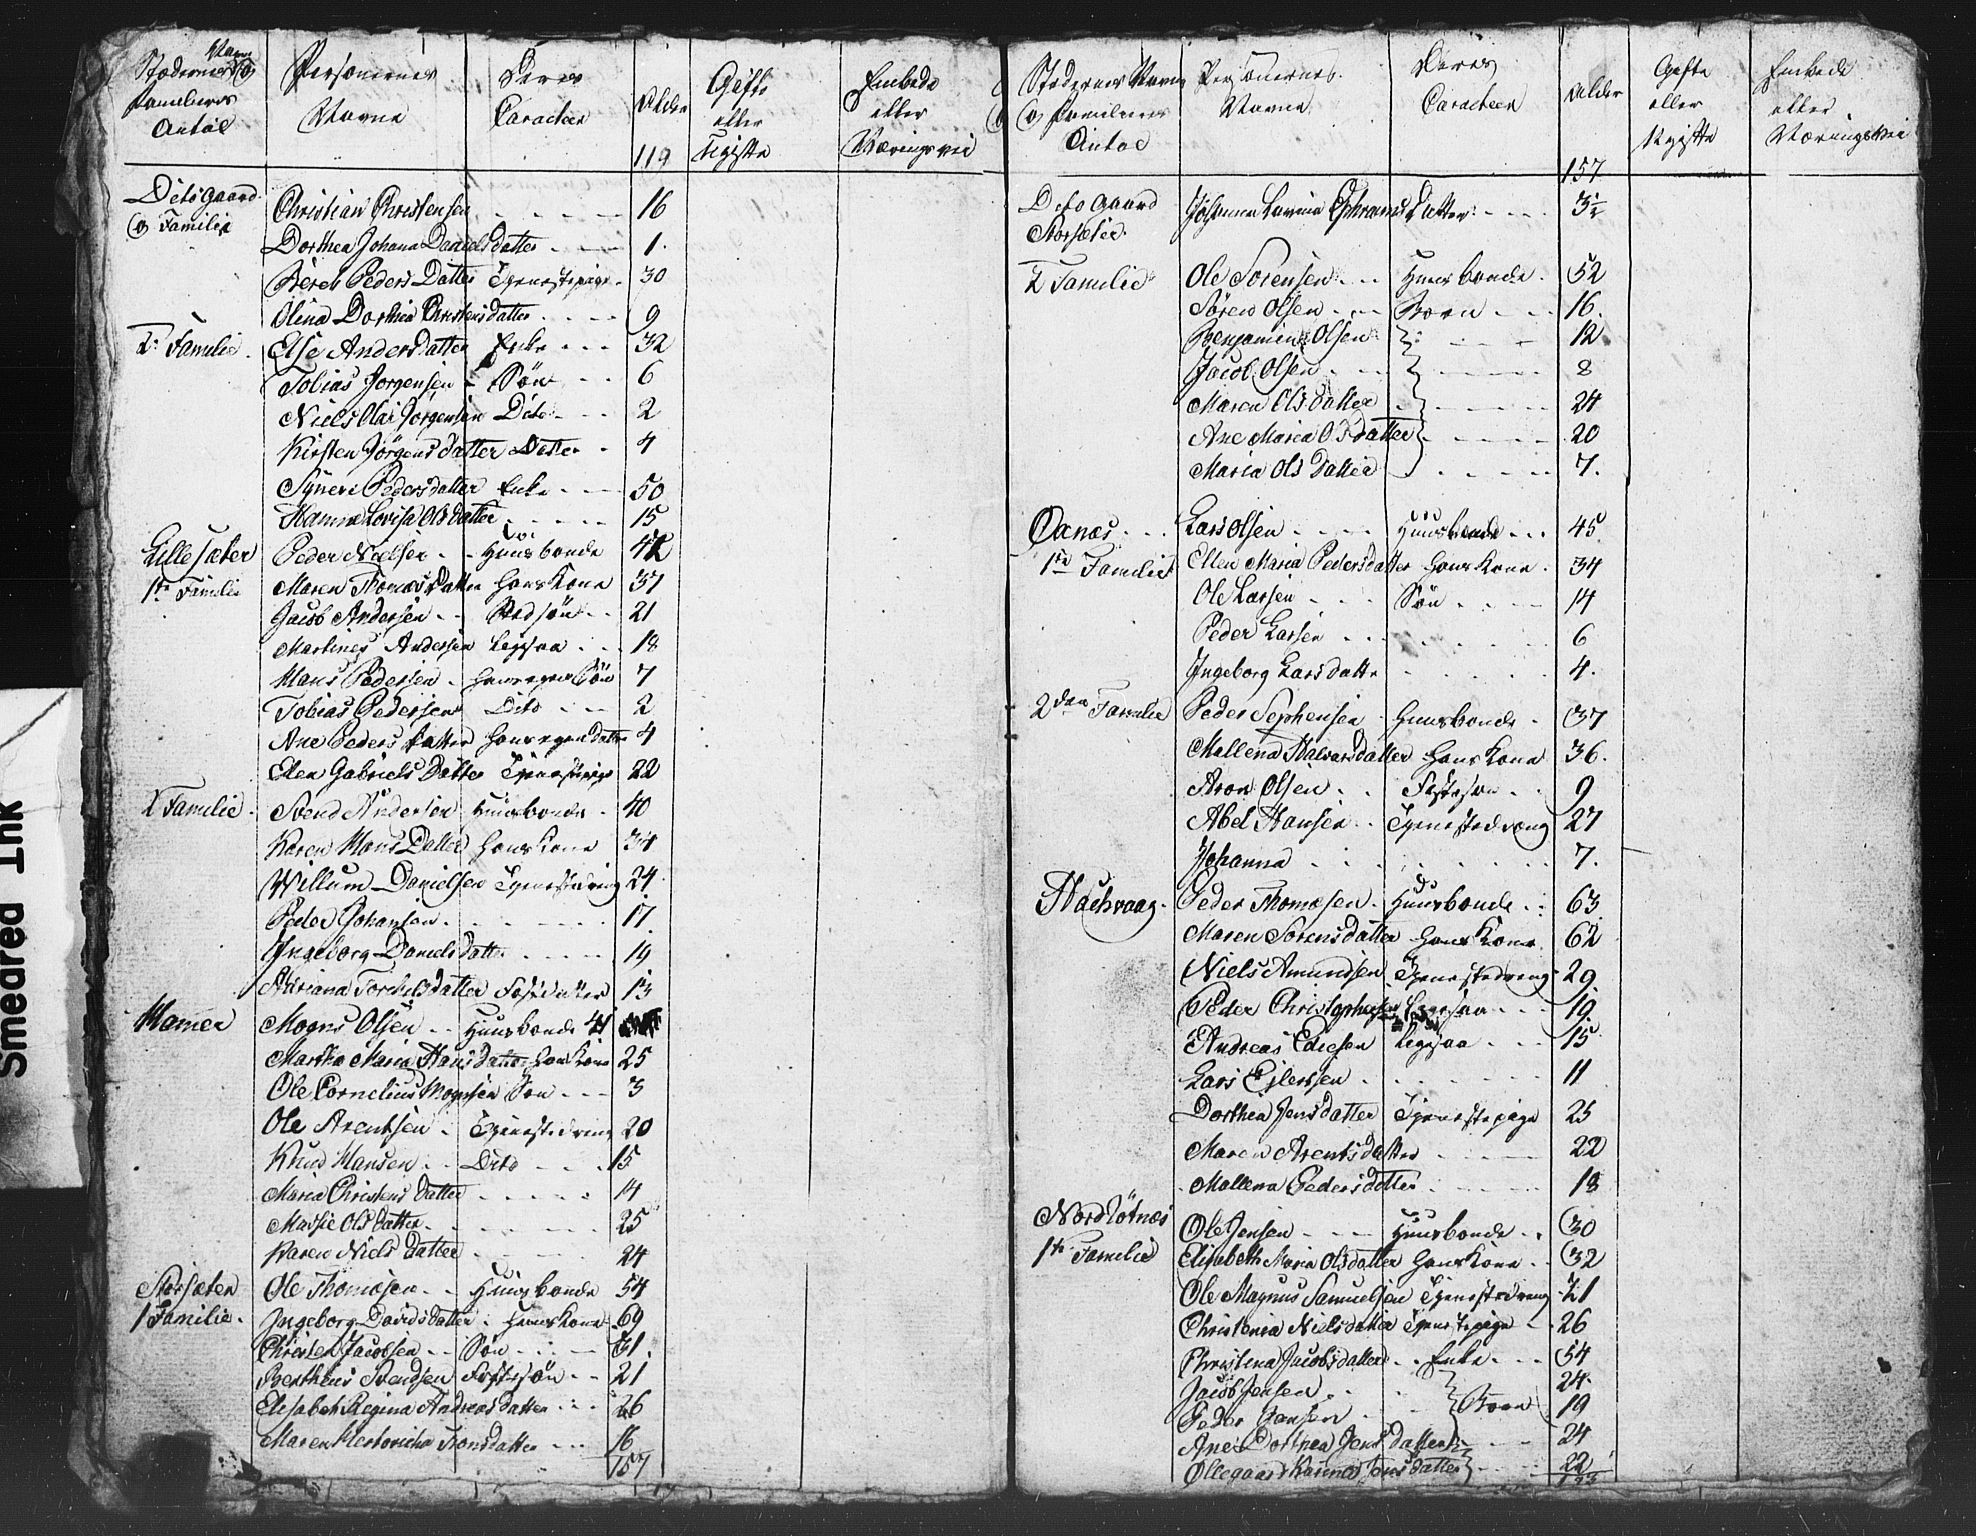 Stædernes Navn og Familiers Antal
Personernes Navne
Deres Caracteer
Alder
Gifte eller Ugifte
Embede eller Næringsvei
119
Dito Gaard
Christian Christensen 16
og Familie
Dorthea Johana Danielsdatter 1
Beret Peders Datter Tjenestepige 30
Olina Dorthea Christensdatter 9
2: Familie Else Andersdatter Enke 32
Tobias Jørgensen Søn 6
Niels Olai Jørgensen Dito 2
Kirsten Jörgensdatter Datter 4
Syneve Pedersdatter Enke 50
Hanna Lovisa Olsdatter 15
Lille sæter Peder Nielsen Huusbonde 42
1te Familie Maren Thomas Datter Hans Kone 37
Jacob Andersen Stedsøn 21
Martines Andersen Legsaa 18
Hans Pedersen Hans egen Søn 7
Tobias Pedersen Dito 2
Ane Peders Datter Hans egen datter 4
Elen Gabriels Datter Tjenestepige 22
2 Familie Svend Andersen Huusbonde 40
Karen Hans Datter Hans Kone 34
Willum Danielsen Tjenestedreng 24
Peder Johansen 17
Ingeborg Danielsdatter 19
Adriana Torchelsdatter Fostdatter 13
Hamer Mogns Olsen Huusbonde 41
Martha Maria Hansdatter Hans Kone 25
Ole Cornelius Mognsen Søn 3
Ole Arentsen Tjenestedreng 20
Knud Hansen Dito 15
Maria Christensdatter 14
Marsie Olsdatter 25
Karen Nielsdatter 24
Storsæter Ole Thomæsen Huusbonde 54
1 Familie Ingeborg Davidsdatter Hans Kone 69
Christen Jacobsen Søn 31
Bertheus Svendsen Fostersøn 21
Elisabeth Regina Andreasdatter 26
Maren Tronsdatter 16
157
Stædernes Navn og Familiernes Antal
Personernes Navne
Deres Caracteer
Alder
Gifte eller Ugifte
Embede eller Næringsvei
157
Dito Gaard Johanna Lavina Ephraims Datter 3½
Storsæter
2 Familie Ole Sorensen Huusbonde 52
Sören Olsen Born 16
Benjamin Olsen 12
Jacob Olsen 8
Maren Olsdatter 24
Ane Maria Olsdatter 20
Maria Olsdatter 7
Oxnæs Lars Olsen Huusbonde 45
1te Familie Ellen Maria Pedersdatter Hans Kone 34
Ole Larsen Søn 14
Peder Larsen 6
Ingeborg Larsdatter 4
2den Familie Peder Sephensen Huusbonde 37
Mallena Halvarsdatter Hans Kone 36
Aron Olsen Fostersøn 9
Abel Hansen Tjenestedreng 27
Johanna 7
Hachvaag Peder Thomæsen Huusbonde 63
Maren Sorensdatter Hans Kone 62
Niels Amundsen Tjenestedreng 29
Peder Christophersen Legsaa 19
Andreas Edicsen Legsaa 15
Lars Ejlersen 11
Dorthea Jensdatter Tjenestepige 25
Maren Arentsdatter 22
Mallena Pedersdatter 18
Nordtötnæs Ole Jensen Huusbonde 30
1te Familie Elisabeth Maria Olsdatter Hans Kone 32
Ole Magnus Samuelsen Tjenestedreng 21
Christensa Nielsdatter Tjenestepige 26
Christina Jacobsdatter Enke 54
Jacob Jensen 24
Peder Jensen Born 19
Ane Dorthea Jensdatter 24
Ollegaard Karina Jensdatter 22
Smedred Ink